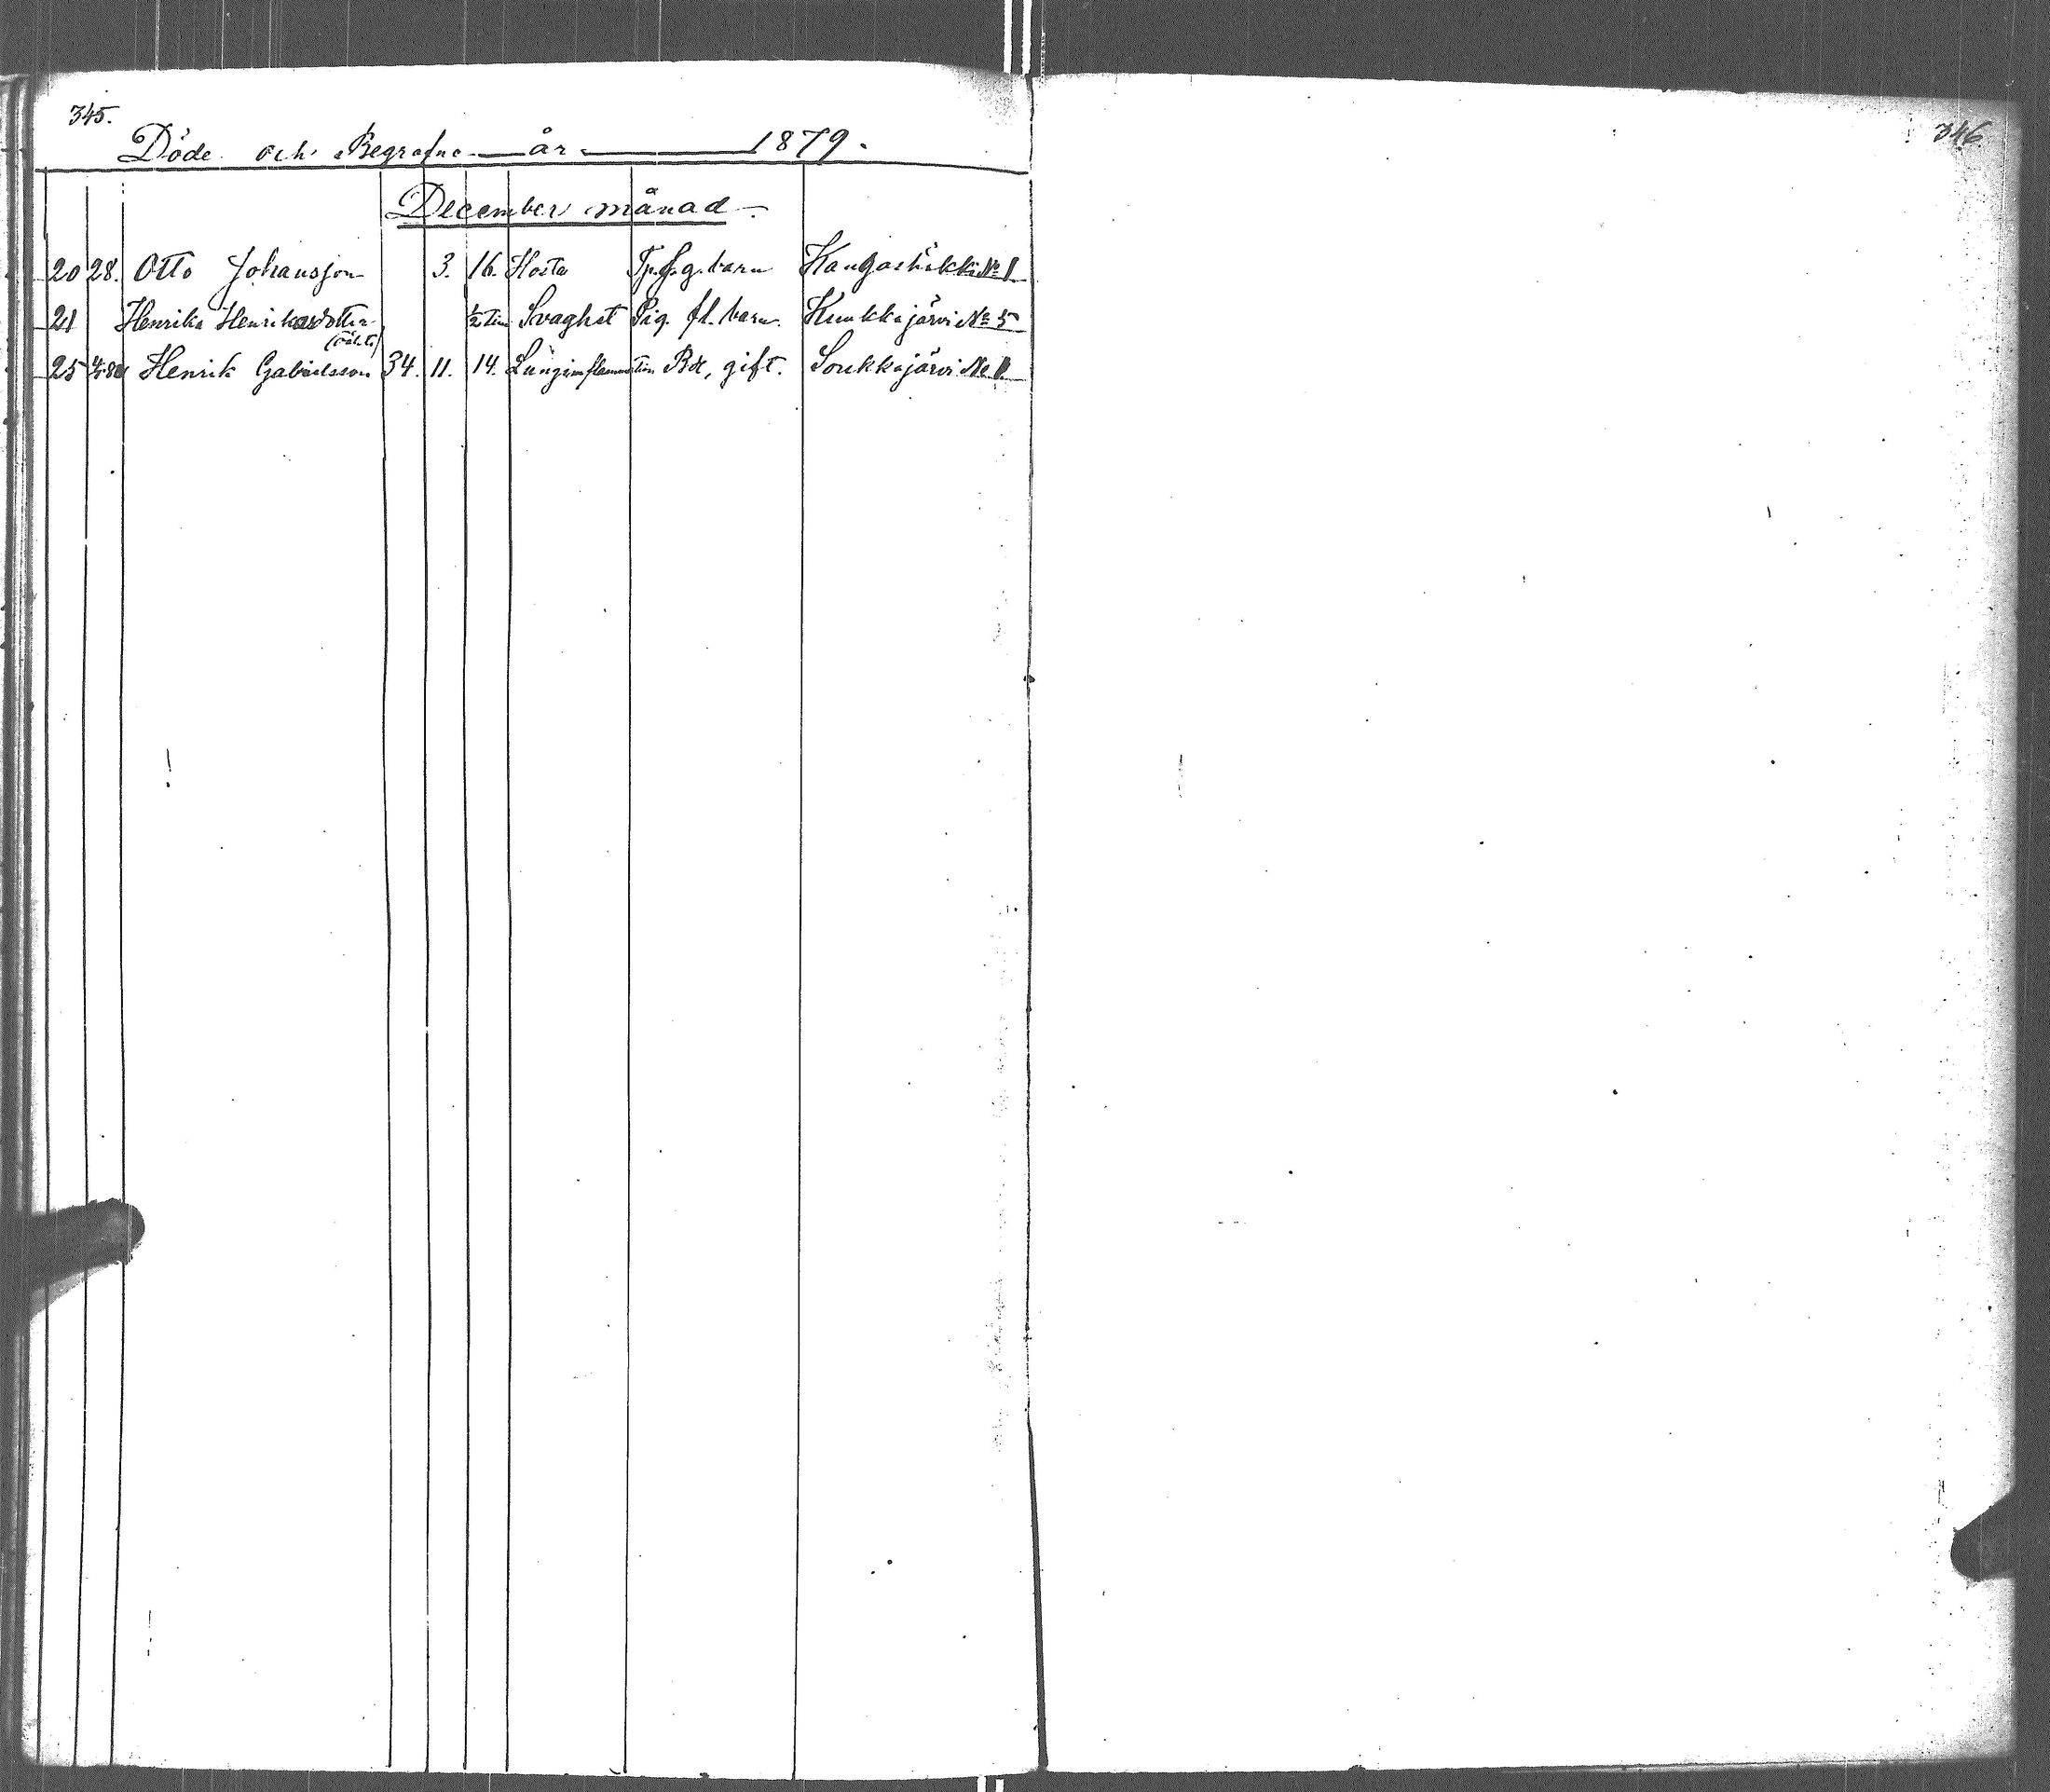 345.
346.
Döde och Begrafne år 1879.
December månad
20 28. Otto Johansson 3. 16. Hosta Tp. g. barn Kangashäkki No 1
21 Henrika Henriksdotter ½ tim Svaghet Pig. fl. barn. Kuukkajärvi No 5
25 4/1 80 Henrik Gabrielsson 34. 11. 14. Lunginflammation Bd, gift. Soukkajärvi No 1.